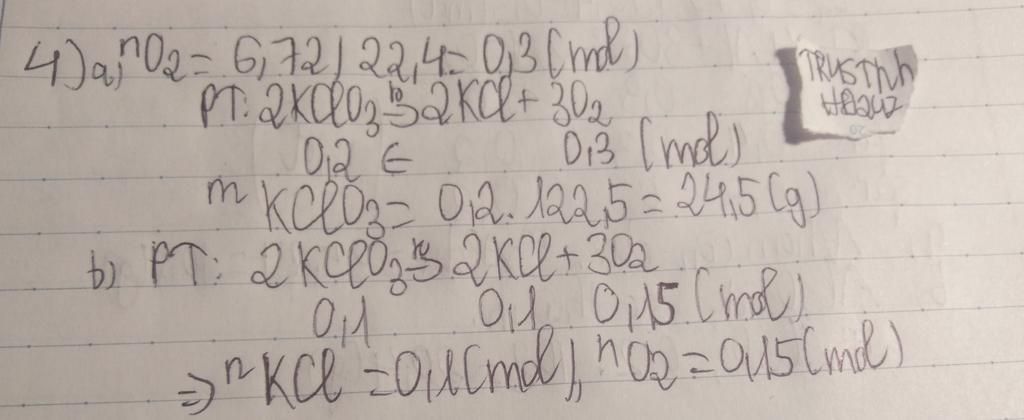 4) a, nO2 = 6,72 / 22,4 = 0,3 (mol)
PT: 2KClO3 →tº 2KCl + 3O2
0,2 ← 0,3 (mol)
mKClO3 = 0,2 . 122,5 = 24,5 (g)
b) PT: 2KClO3 →tº 2KCl + 3O2
0,1 0,1 0,15 (mol)
=> nKCl = 0,1 (mol), nO2 = 0,15 (mol)
TRUSThh